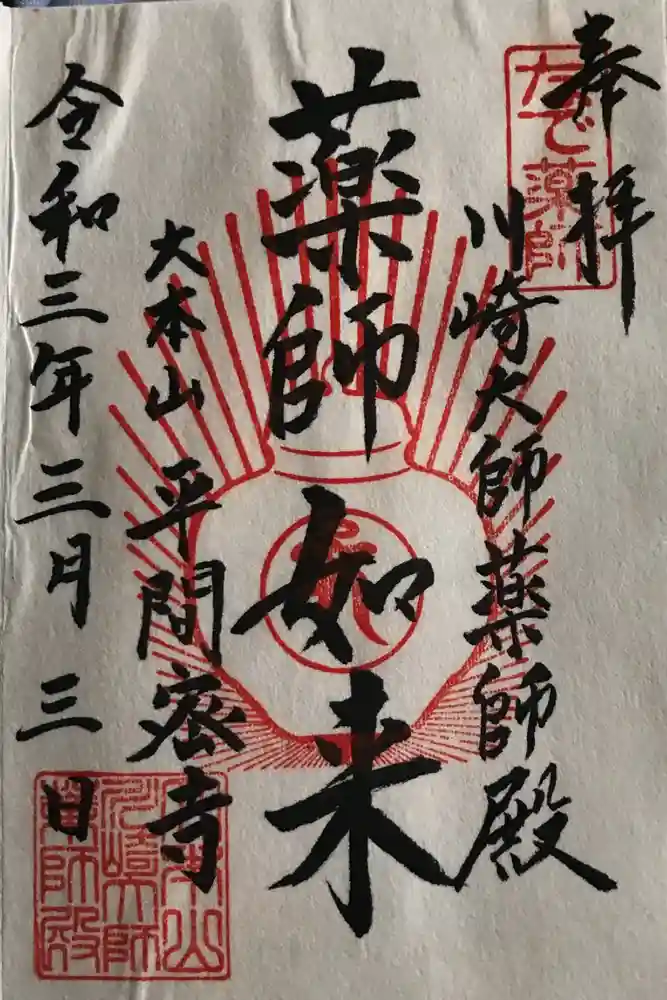 奉拝
なで薬師
川崎大師薬師殿
薬師如来
大本山 平間密寺
令和三年三月三日
大本山
川崎大師
薬師殿